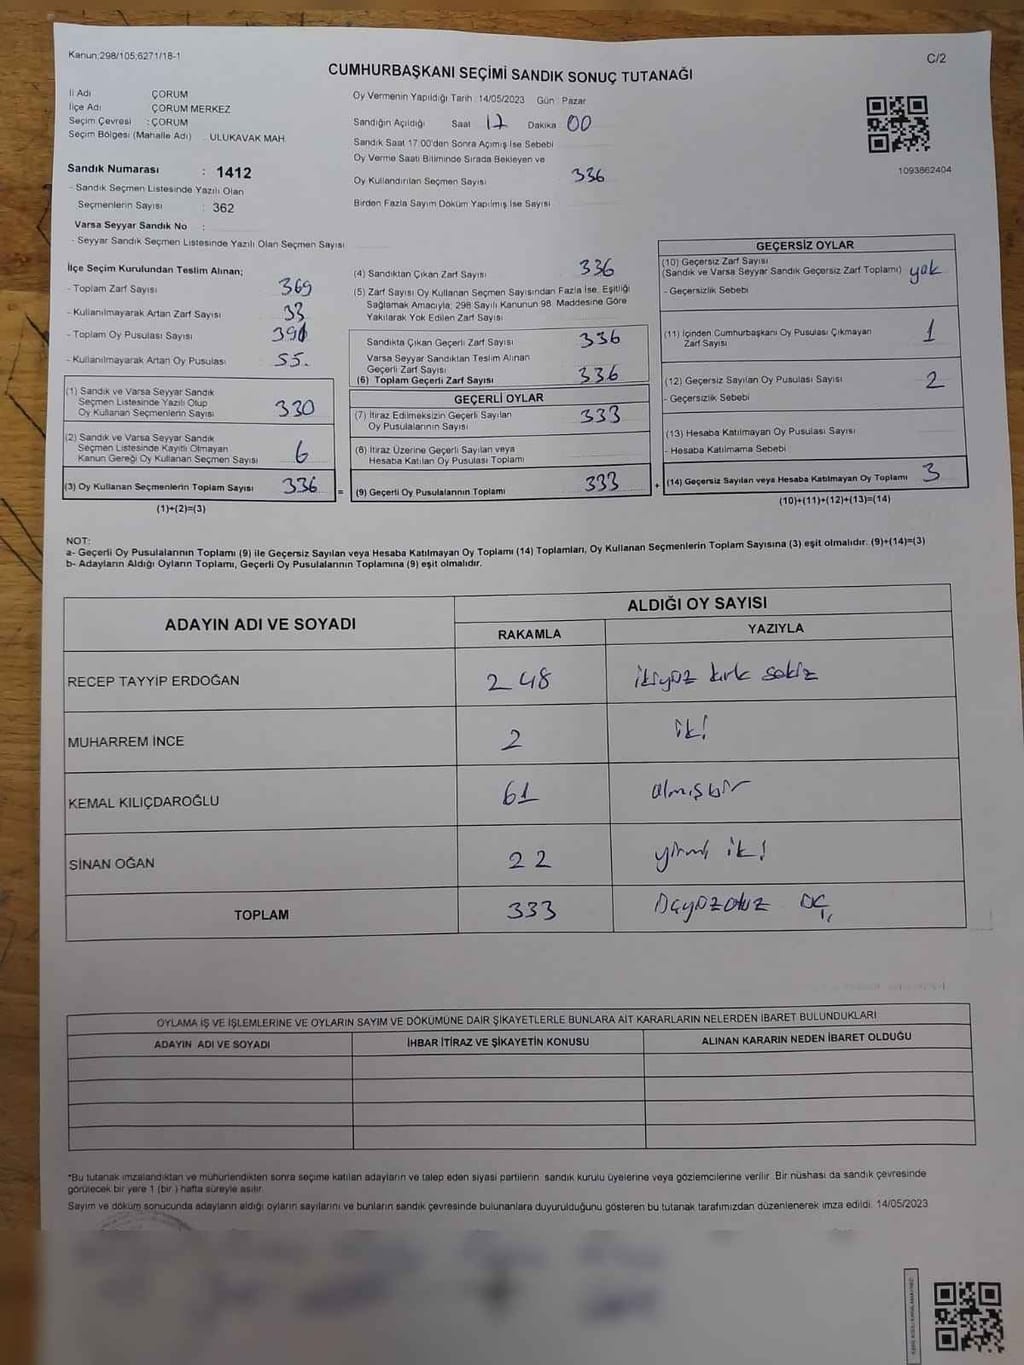 Kanun:298/105;6271/18-1
C/2
CUMHURBAŞKANI SEÇİMİ SANDIK SONUÇ TUTANAĞI
İl Adı ÇORUM
İlçe Adı ÇORUM MERKEZ
Seçim Çevresi : ÇORUM
Seçim Bölgesi (Mahalle Adı) ULUKAVAK MAH
Sandık Numarası : 1412
- Sandık Seçmen Listesinde Yazılı Olan
Seçmenlerin Sayısı : 362
Varsa Seyyar Sandık No :
- Seyyar Sandık Seçmen Listesinde Yazılı Olan Seçmen Sayısı
Oy Vermenin Yapıldığı Tarih : 14/05/2023 Gün : Pazar
Sandığın Açıldığı Saat 17 Dakika 00
Sandık Saat 17.00'den Sonra Açımış İse Sebebi
Oy Verme Saati Bitiminde Sırada Bekleyen ve
Oy Kullandırılan Seçmen Sayısı 336
Birden Fazla Sayım Döküm Yapılmış İse Sayısı
1093862404
İlçe Seçim Kurulundan Teslim Alınan;
- Toplam Zarf Sayısı 369
- Kullanılmayarak Artan Zarf Sayısı 33
- Toplam Oy Pusulası Sayısı 391
- Kullanılmayarak Artan Oy Pusulası 55.
(1) Sandık ve Varsa Seyyar Sandık
Seçmen Listesinde Yazılı Olup
Oy Kullanan Seçmenlerin Sayısı 330
(2) Sandık ve Varsa Seyyar Sandık
Seçmen Listesinde Kayıtlı Olmayan
Kanun Gereği Oy Kullanan Seçmen Sayısı 6
(3) Oy Kullanan Seçmenlerin Toplam Sayısı 336
(1)+(2)=(3)
(4) Sandıktan Çıkan Zarf Sayısı 336
(5) Zarf Sayısı Oy Kullanan Seçmen Sayısından Fazla İse, Eşitliği
Sağlamak Amacıyla; 298 Sayılı Kanunun 98. Maddesine Göre
Yakılarak Yok Edilen Zarf Sayısı
Sandıkta Çıkan Geçerli Zarf Sayısı 336
Varsa Seyyar Sandıktan Teslim Alınan
Geçerli Zarf Sayısı
(6) Toplam Geçerli Zarf Sayısı 336
GEÇERLİ OYLAR
(7) İtiraz Edilmeksizin Geçerli Sayılan
Oy Pusulalarının Sayısı 333
(8) İtiraz Üzerine Geçerli Sayılan veya
Hesaba Katılan Oy Pusulası Toplamı
= (9) Geçerli Oy Pusulalarının Toplamı 333
GEÇERSİZ OYLAR
(10) Geçersiz Zarf Sayısı
(Sandık ve Varsa Seyyar Sandık Geçersiz Zarf Toplamı) yok
- Geçersizlik Sebebi
(11) İçinden Cumhurbaşkanı Oy Pusulası Çıkmayan
Zarf Sayısı 1
(12) Geçersiz Sayılan Oy Pusulası Sayısı 2
- Geçersizlik Sebebi
(13) Hesaba Katılmayan Oy Pusulası Sayısı
- Hesaba Katılmama Sebebi
+ (14) Geçersiz Sayılan veya Hesaba Katılmayan Oy Toplamı 3
(10)+(11)+(12)+(13)=(14)
NOT:
a- Geçerli Oy Pusulalarının Toplamı (9) ile Geçersiz Sayılan veya Hesaba Katılmayan Oy Toplamı (14) Toplamları, Oy Kullanan Seçmenlerin Toplam Sayısına (3) eşit olmalıdır. (9)+(14)=(3)
b- Adayların Aldığı Oyların Toplamı, Geçerli Oy Pusulalarının Toplamına (9) eşit olmalıdır.
ADAYIN ADI VE SOYADI
ALDIĞI OY SAYISI
RAKAMLA YAZIYLA
RECEP TAYYİP ERDOĞAN 248 ikiyüz kırk sekiz
MUHARREM İNCE 2 iki
KEMAL KILIÇDAROĞLU 61 altmışbir
SİNAN OĞAN 22 yirmi iki
TOPLAM 333 üçyüzotuz üç
OYLAMA İŞ VE İŞLEMLERİNE VE OYLARIN SAYIM VE DÖKÜMÜNE DAİR ŞİKAYETLERLE BUNLARA AİT KARARLARIN NELERDEN İBARET BULUNDUKLARI
ADAYIN ADI VE SOYADI İHBAR İTİRAZ VE ŞİKAYETİN KONUSU ALINAN KARARIN NEDEN İBARET OLDUĞU
*Bu tutanak imzalandıktan ve mühürlendikten sonra seçime katılan adayların ve talep eden siyasi partilerin sandık kurulu üyelerine veya gözlemcilerine verilir. Bir nüshası da sandık çevresinde
görülecek bir yere 1 (bir ) hafta süreyle asılır.
Sayım ve döküm sonucunda adayların aldığı oyların sayılarını ve bunların sandık çevresinde bulunanlara duyurulduğunu gösteren bu tutanak tarafımızdan düzenlenerek imza edildi. 14/05/2023